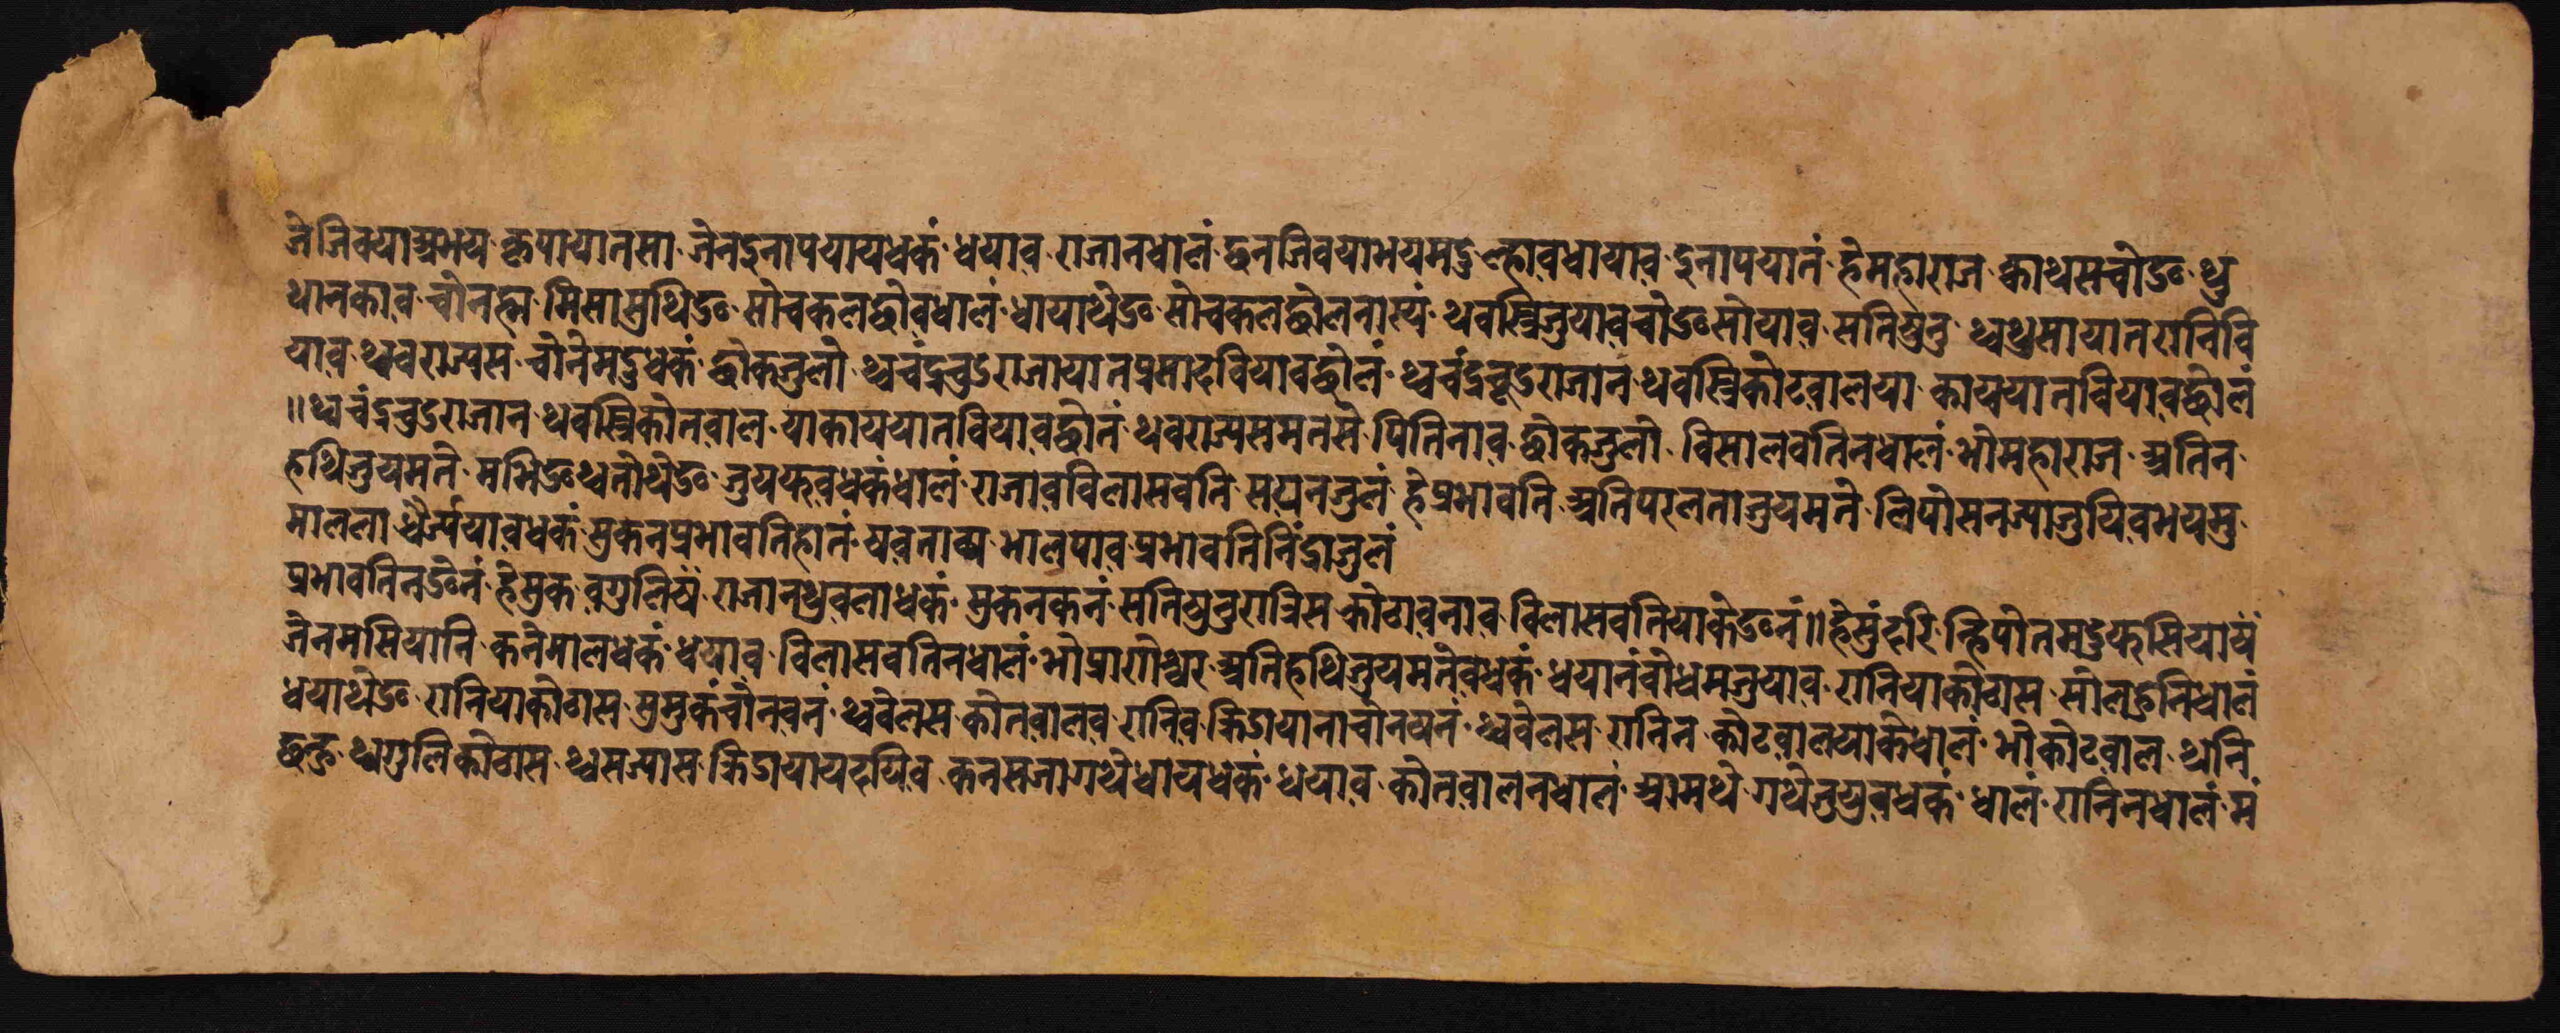 जेजिवयाअभय कृपायातसा जेनइनापयायधकं धयाव राजानधालं छनजिवयाभयमदु ल्हावधायाव इनापयातं हेमहाराज काथसचोङ थु
थानकाव चोनह्म मिसासुथिङ सोचकलछोवधालं धायाथेङ सोचकलछोलनास्यं थवस्त्रिजुयावचोङसोयाव सतिषुनु थ्वथुसायातरानिवि
याव थ्ववराज्यस चोनेमदुधकं छोकजुलो थ्वचंद्रचुडराजायातप्रसादवियावछोलं थ्वचंद्रचूडराजान थवस्त्रिकोटवालया कायययातवियावछोलं
॥थ्वचंद्रचुडराजान थवस्त्रिकोतवाल याकाययातवियावछोतं थवराज्यसमतसे पितिनाव छोकजुलो विसालवतिनधालं भोमहाराज अतिन
हथिजुयमते मभिङथ्वतोथेङ जुयफवधकंधालं राजावविलासवति सयनजुलं हेप्रभावति अतिपरलताजुयमते लिपोसनज्याजुयिवभयमु
मालला धैर्ज्ययावधकं सुकनप्रभावतिहातं षवनाव्य भालपाव प्रभावतिनिंद्राजुलं
प्रभावतिनङेनं हेसुक वगुलिष्यं राजानथुवलाधकं सुकनकनं सतिषुनुरात्रिस कोठावनाव विलासवतियाकेङनं॥हेसुंदरि न्हिपोतमदुफसियाष्यं
जेनमसियानि कनेमालधकं धयाव विलासवतिनधालं भोप्रागोश्वर अतिहथिजुयमतेवधकं धयानंवोधमजुयाव रानियाकोठास सोलङनिधालं
धयाथेङ रानियाकोठास सुसुकंचोनवनं थ्ववेलस कोतवालव रानिव क्रिडायानाचोनषनं थ्ववेलस रानिन कोटवालयाकेधालं भोकोटवाल थनि
छन्त थ्वगुलिकोठास थ्वसज्यास क्रिडायायदयिव कनसजागथेधायधकं धयाव कोतवालनधालं आमथे गथेजुयुवधकं धालं रानिनधालं मं